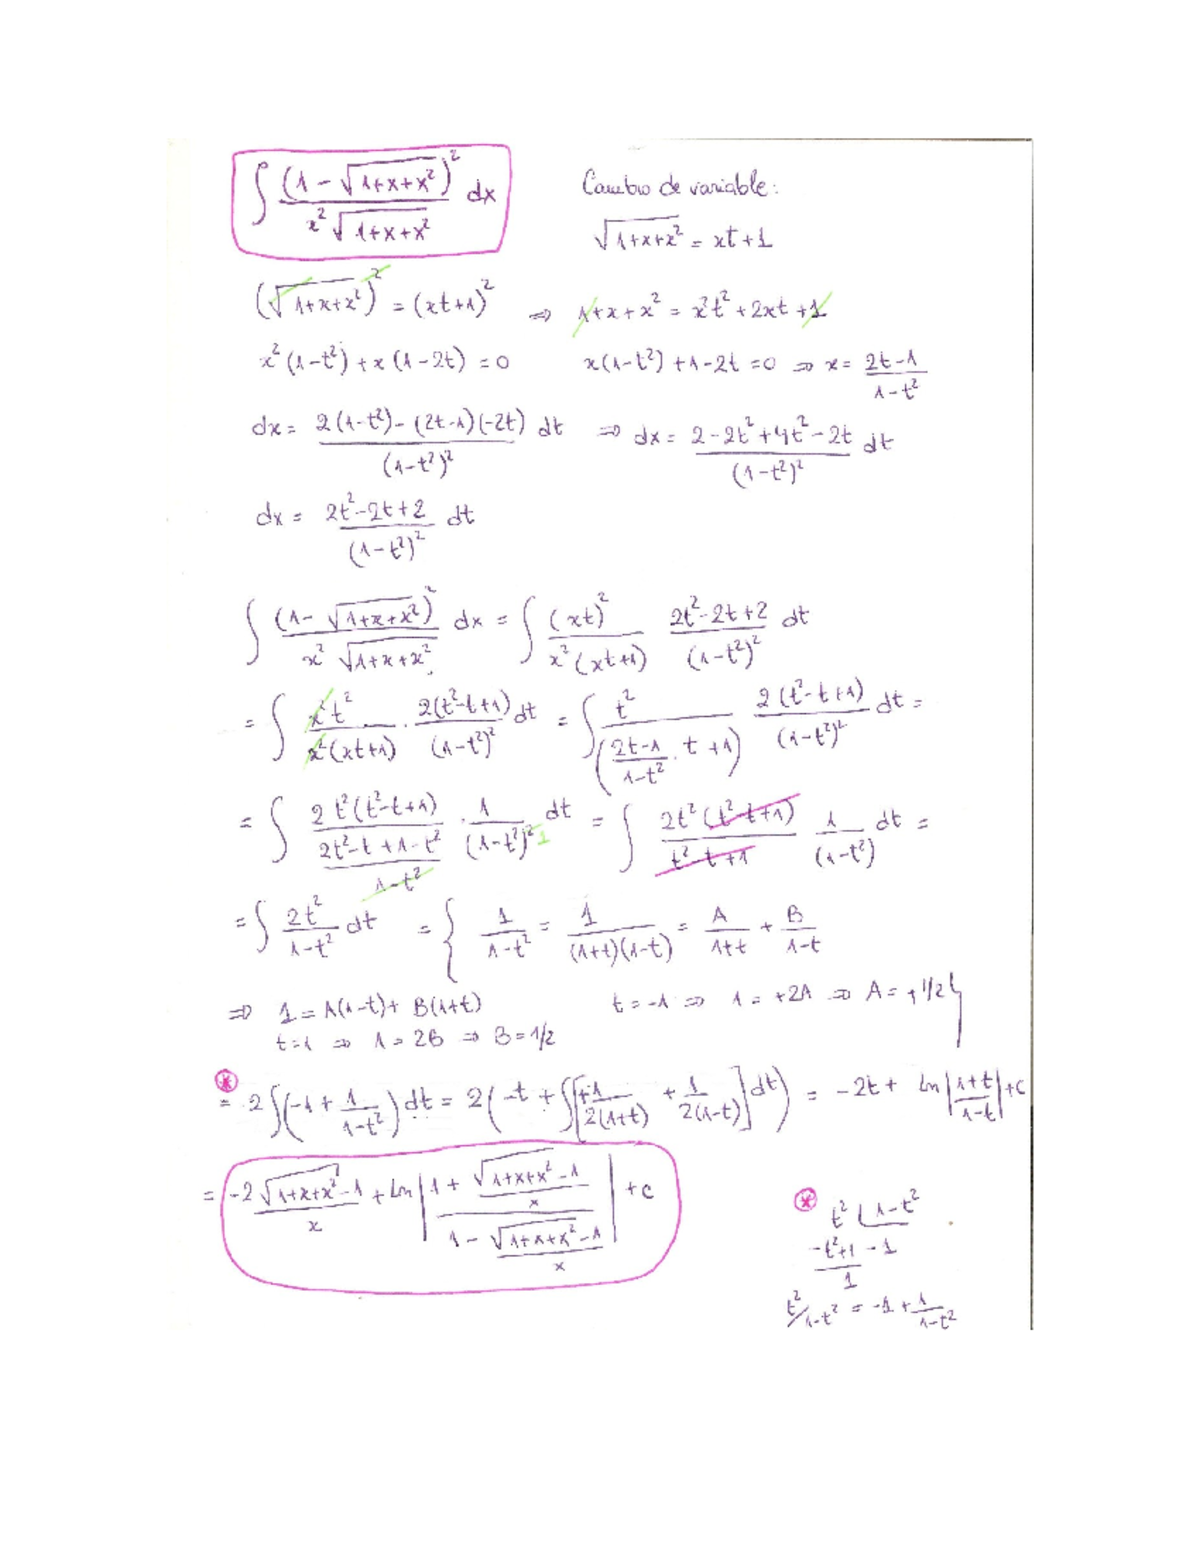 ∫ (1 - √(1+x+x²))² / (x² √(1+x+x²)) dx
Cambio de variable:
√(1+x+x²) = xt+1
(√(1+x+x²))² = (xt+1)² ⇒ 1+x+x² = x²t² + 2xt + 1
x²(1-t²) + x(1-2t) = 0 x(1-t²) + 1-2t = 0 ⇒ x = (2t-1)/(1-t²)
dx = (2(1-t²) - (2t-1)(-2t))/(1-t²)² dt ⇒ dx = (2-2t²+4t²-2t)/(1-t²)² dt
dx = (2t²-2t+2)/(1-t²)² dt
∫ (1-√(1+x+x²))² / (x² √(1+x+x²)) dx = ∫ (xt)²/(x²(xt+1)) (2t²-2t+2)/(1-t²)² dt
= ∫ x²t²/(x²(xt+1)) · 2(t²-t+1)/(1-t²)² dt = ∫ t²/((2t-1)/(1-t²) · t + 1) 2(t²-t+1)/(1-t²)² dt =
= ∫ 2t²(t²-t+1)/((2t²-t+1-t²)/(1-t²)) · 1/(1-t²)² 1 dt = ∫ 2t²(t²-t+1)/(t²-t+1) 1/(1-t²) dt =
= ∫ 2t²/(1-t²) dt = { 1/(1-t²) = 1/((1+t)(1-t)) = A/(1+t) + B/(1-t)
⇒ 1 = A(1-t) + B(1+t) t = -1 ⇒ 1 = +2A ⇒ A = +1/2 }
t=1 ⇒ 1 = 2B ⇒ B = 1/2
⊛
= 2∫(-1 + 1/(1-t²)) dt = 2(-t + ∫[+1/(2(1+t)) + 1/(2(1-t))] dt) = -2t + Ln|(1+t)/(1-t)| + C
= -2 (√(1+x+x²) -1)/x + Ln |(1 + (√(1+x+x²) -1)/x)/(1 - (√(1+x+x²) -1)/x)| + C
⊛ t² ⌊1-t²
-t²+1 -1
1
t²/1-t² = -1 + 1/(1-t²)